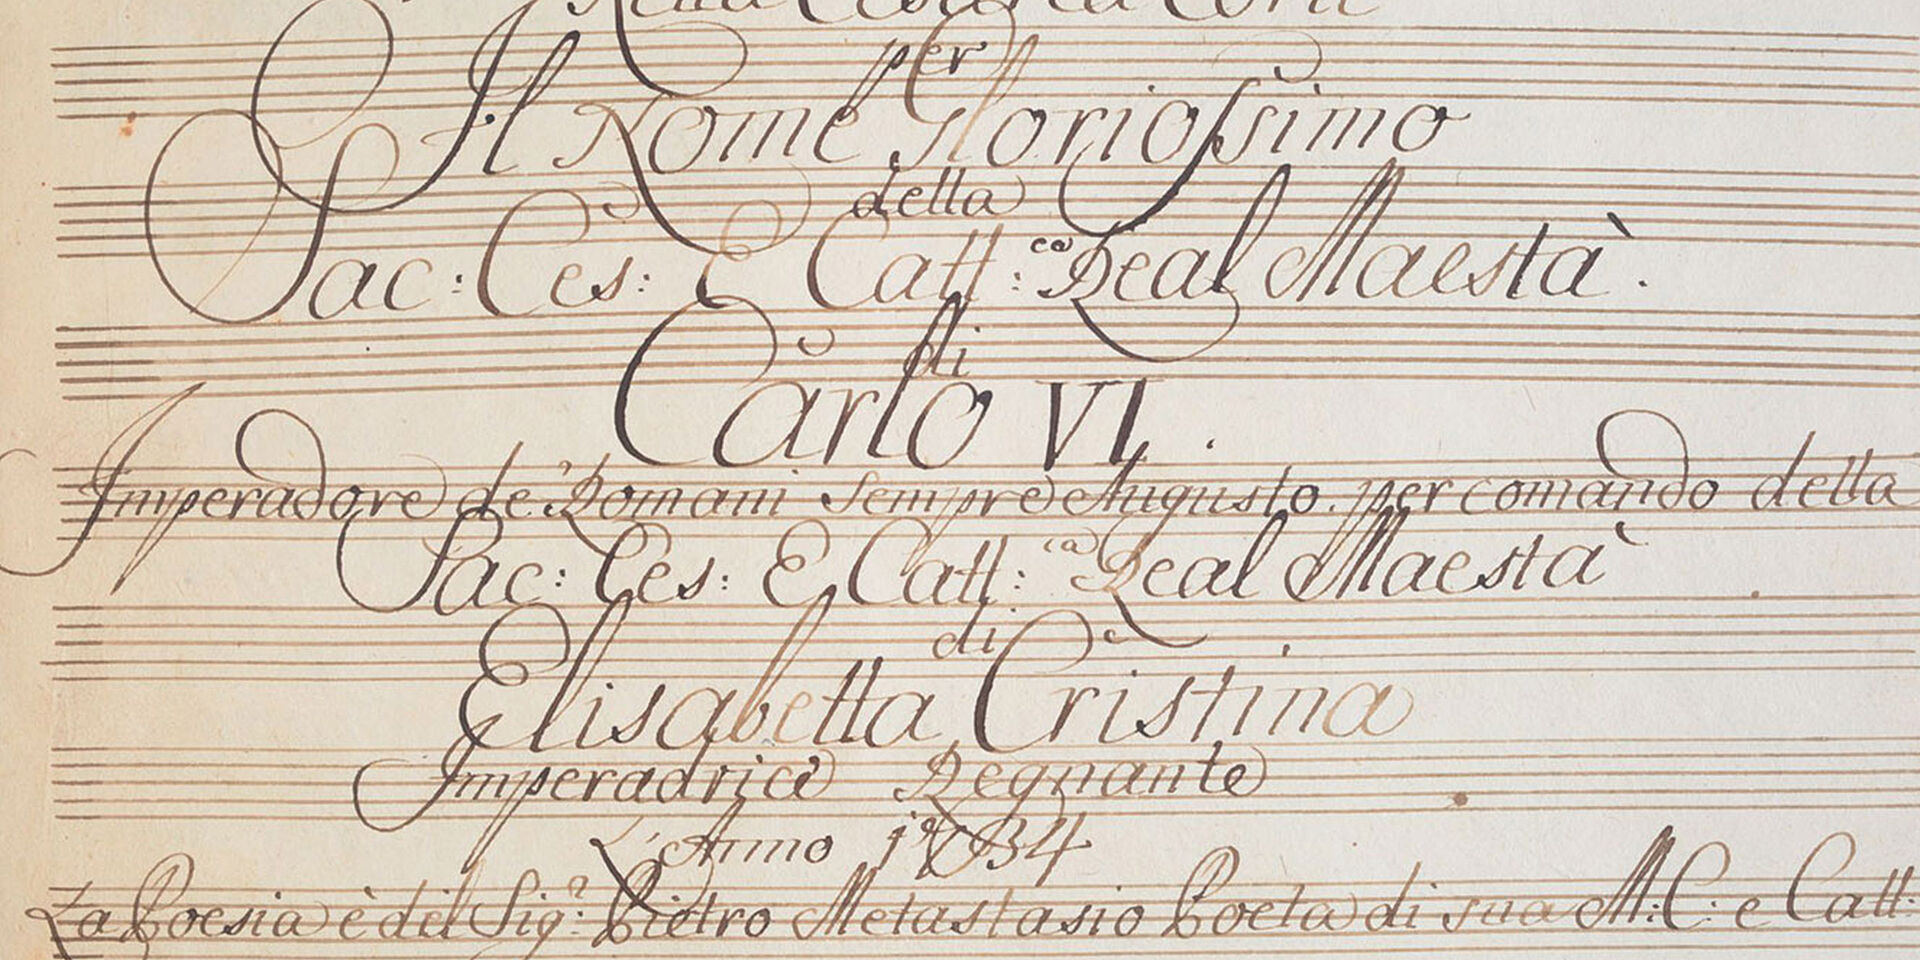 Nella Cesarea Corte
per
Il Nome Gloriossimo
della
Sac: Ces: E Catt: ca Real Maestà.
di
Carlo VI.
Imperadore de' Romani sempre Augusto. per comando della
Sac: Ces: E Catt: ca Real Maestà
di
Elisabetta Cristina
Imperadrice Regnante
L'Anno 1734
La Poesia è del Sigr: Pietro Metastasio Poeta di sua M: C: e Catt: